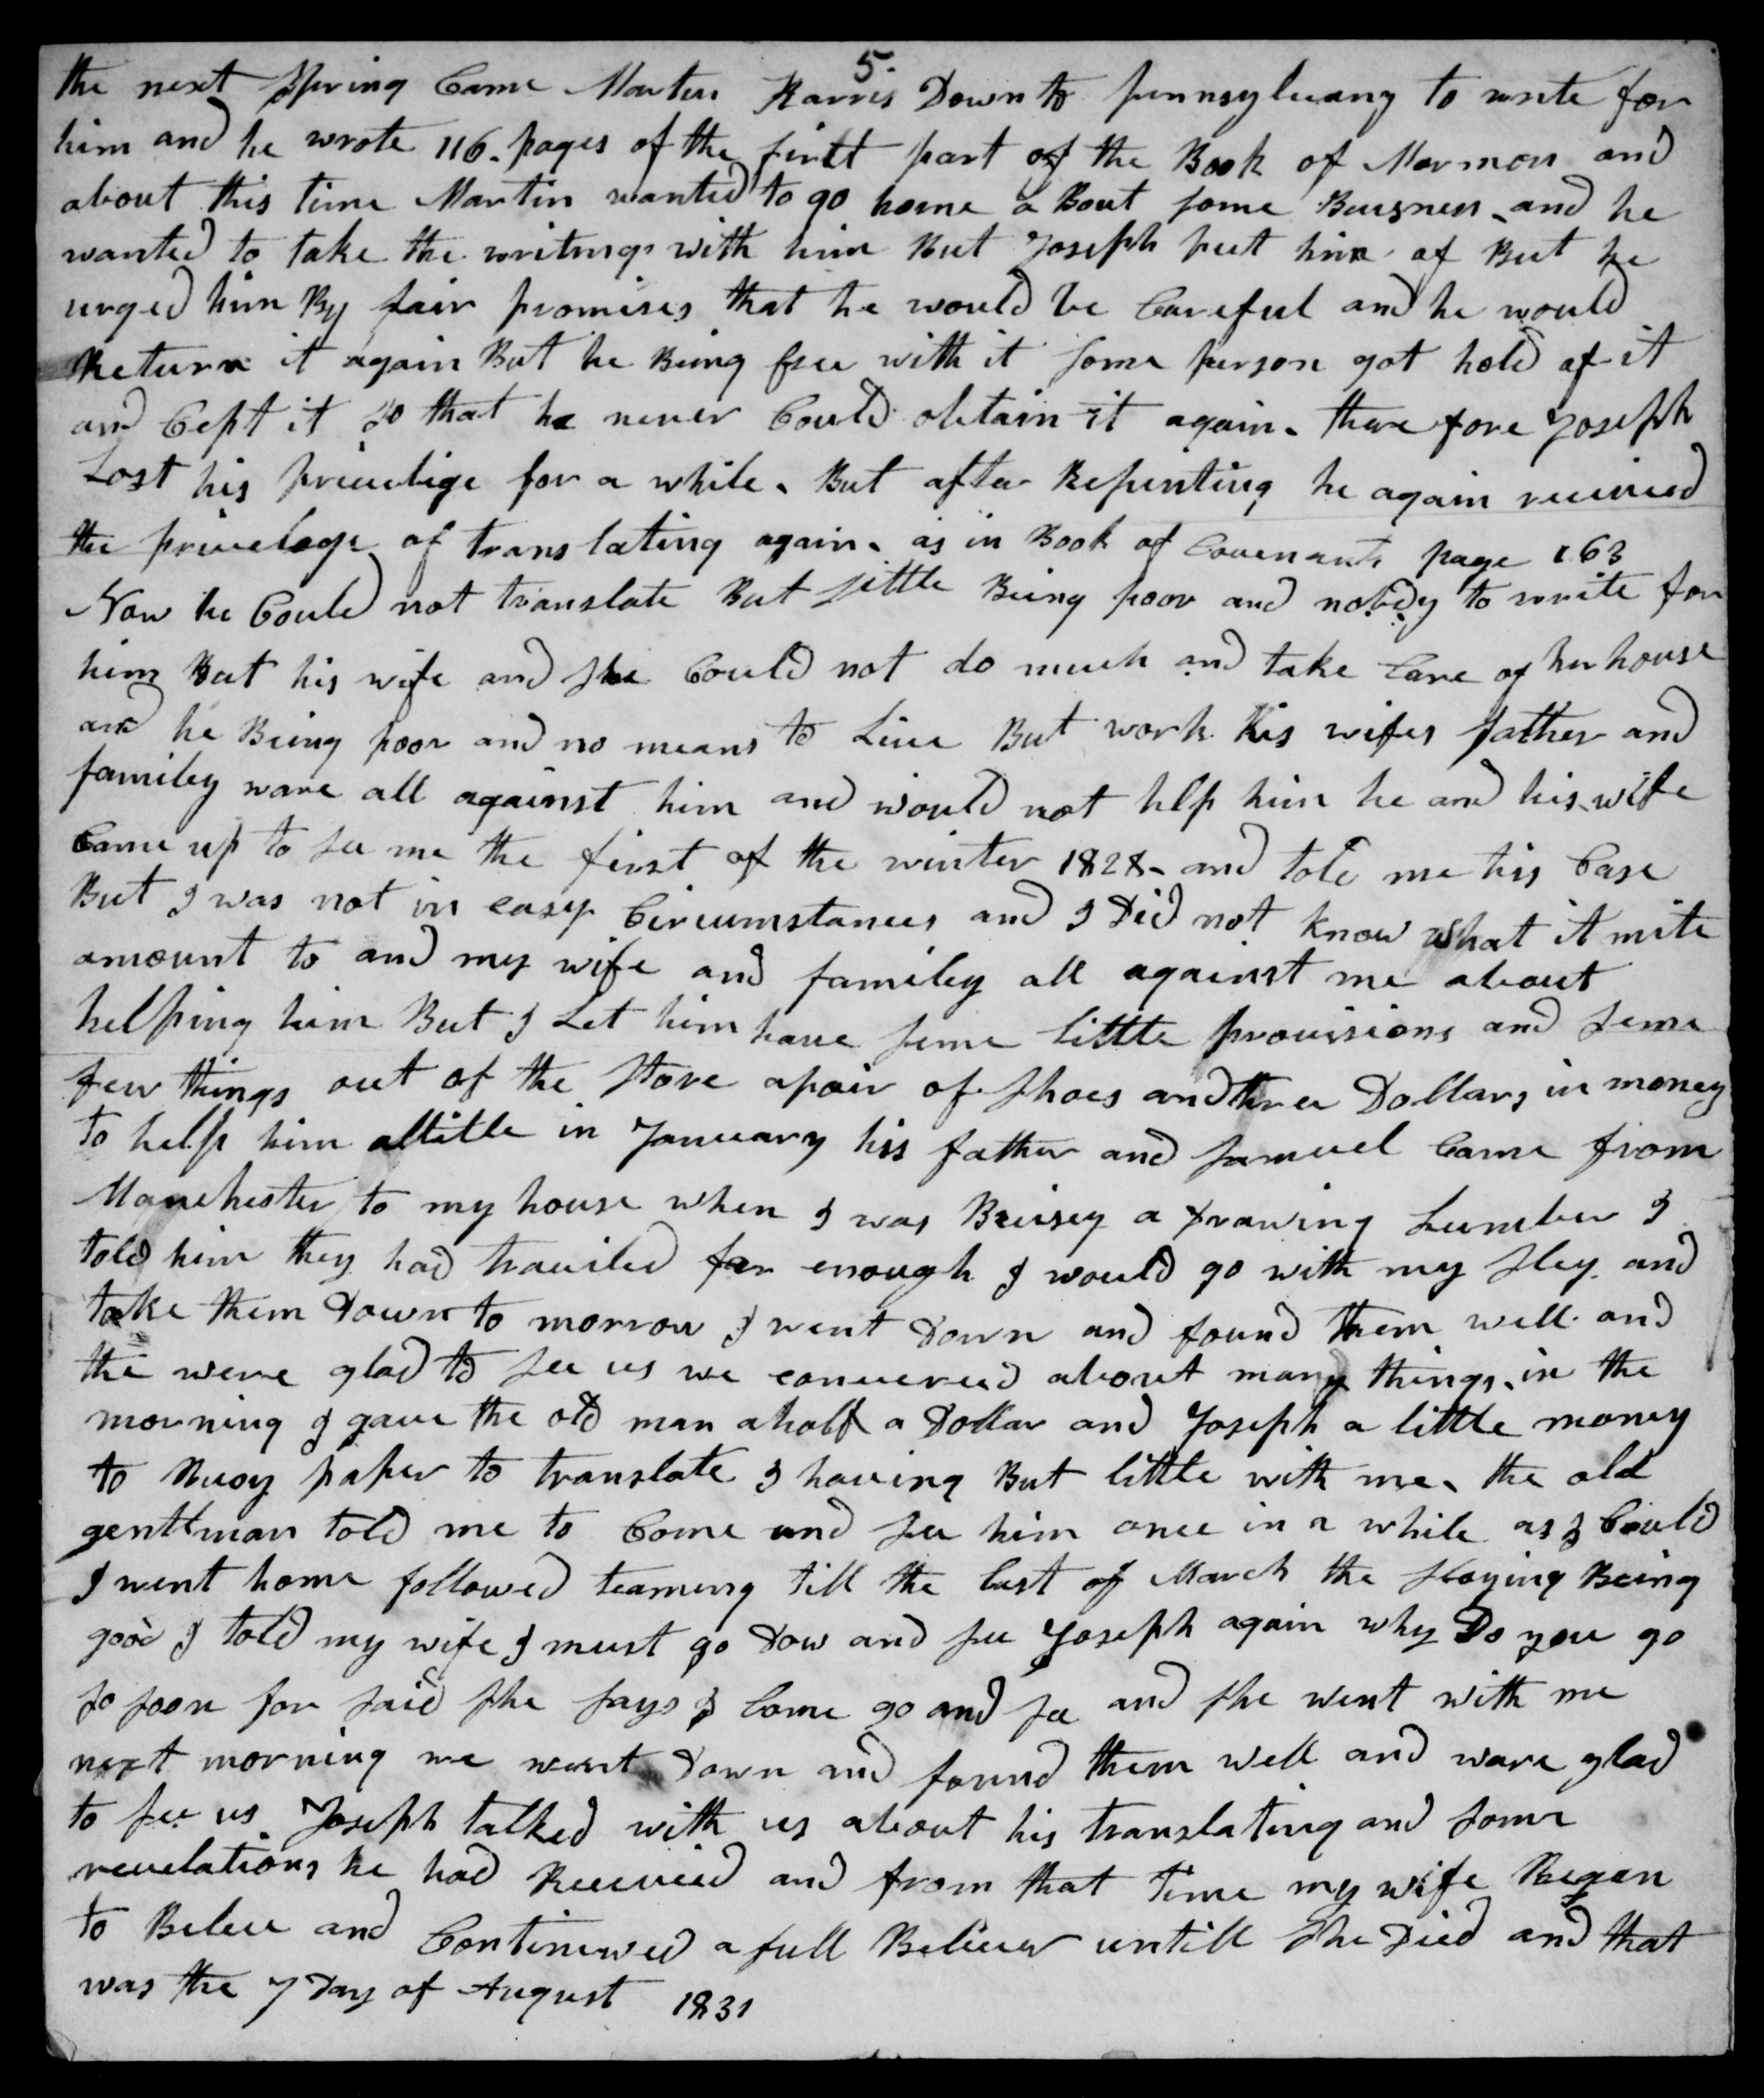 5.
the next Spring Came Marten Harris Down to pennsylvany to write for
him and he wrote 116. pages of the first part of the Book of Mormon and
about this time Martin wanted to go home a Bout some Buisness and he
wanted to take the writings with him But Joseph put him of But he
urged him By fair promises that he would be Careful and he would
Return it again But he Being free with it some person got hold of it
and Cept it so that he never Could obtain it again. therefore Joseph
Lost his privelige for a while. But after Repenting he again received
the privelege of translating again. as in Book of Covenants page 163
Now he Could not translate But little Being poor and nobdy to write for
him But his wife and she Could not do much and take Care of her house
and he Being poor and no means to Live But work his wifes father and
familey ware all against him and would not hlp him he and his wife
Came up to see me the first of the winter 1828 and told me his Case
But I was not in easy Circumstances and I Did not know what it mite
amount to and my wife and familey all against me about
helping him But I Let him have some little provisions and some
few things out of the Store apair of Shoes and three Dollars in money
to help him alittle in January his father and Samuel Came from
Manchester to my house when I was Buisey a Drawing Lumber I
told him they had traviled far enough I would go with my Sley and
take them Down to morrow I went Down and found them well and
the were glad to see us we conversed about many things. in the
morning I gave the old man a half a Dollar and Joseph a little money
to Buoy paper to translate I having But little with me. the old
gentlman told me to Come and see him once in a while as I Could
I went home followed teaming till the last of March the Slaying Being
good I told my wife I must go Dow and see Joseph again why Do you go
so soon for said she says I Come go and see and she went with me
next morning we went Down and found them well and ware glad
to see us Joseph talked with us about his translating and some
revelations he had Received and from that time my wife Began
to Beleve and Continuwed a full Believer untill she Died and that
was the 7 Day of August 1831